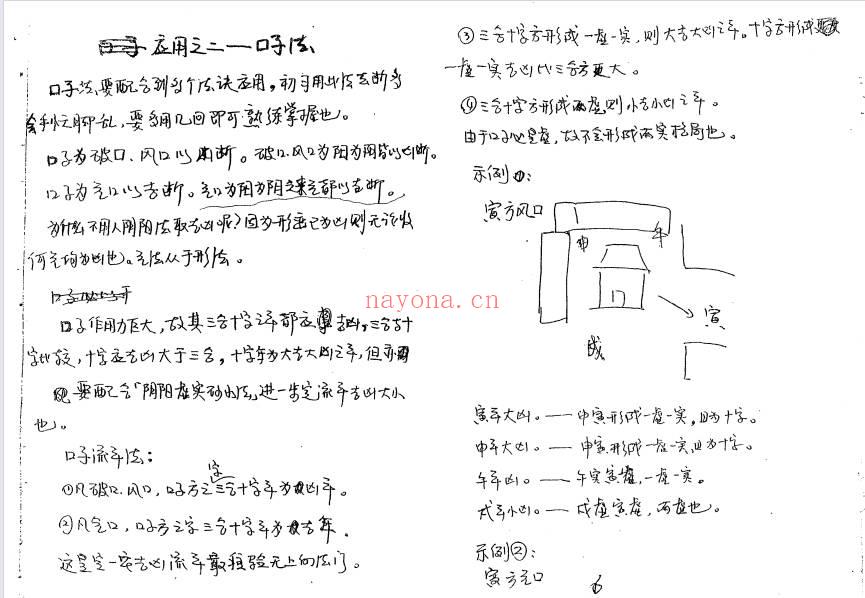 应用之二——口子法
口子法,要配合到各个法诀应用,初习用此法去断多
会手忙脚乱,要多用几回即可熟练掌握也。
口子为破口、风口以凶断。破口、风口为阳为阴皆以凶断。
口子为气口以吉断。气口为阳为阴之来气都以吉断。
为什么不用人阴阳法取吉凶呢?因为形峦已为凶则无论收
何气均为凶也。气法从于形法。
口子作用力巨大,故其三合十字之年都应吉凶,三合与十
字比较,十字应吉凶大于三合,十字年为大吉大凶之年,但
要配合“阴阳虚实砂水法”进一步定流年吉凶大小
也。
口子流年法:
①凡破口、风口,口子方之字三合十字年为凶年。
②凡气口,口子方之字三合十字年为吉年。
这是定一宅吉凶流年最经验无上的法门。
③三合十字方形成一虚一实,则大吉大凶之年。十字方形成
一虚一实吉凶比三合方更大。
④三合十字方形成两虚则小吉小凶之年。
由于口子必是虚,故不会形成两实格局也。
示例①:
寅方风口
申
午
寅
戌
寅年大凶。——申寅形成一虚一实,且为十字。
申年大凶。——申寅形成一虚一实且为十字。
午年凶。——午实寅虚,一虚一实。
戌年小凶。——戌虚寅虚,两虚也。
示例②:
寅方气口
nayona.cn